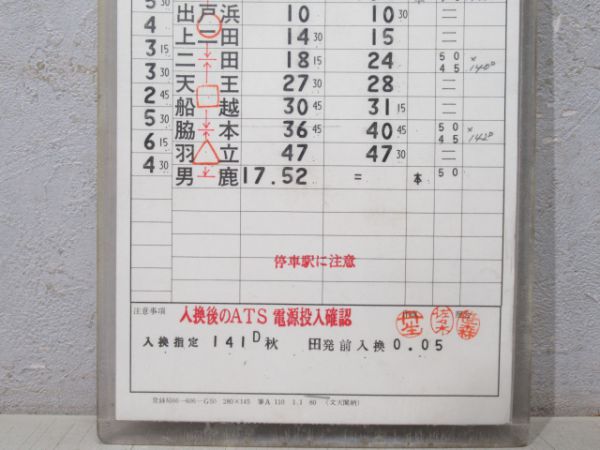 5 30 出戸浜 10 10 30 二
4 上二田 14 30 15 二
3 30 二田 18 15 24 50 45 × 140D
3 30 天王 27 30 28 二
2 45 船越 30 45 31 15 二
5 30 脇本 36 45 40 45 50 45 × 142D
6 15 羽立 47 47 30 二
4 30 男鹿 17.52 = 本 50
停車駅に注意
注意事項
入換後のATS 電源投入確認
入換指定 141D秋 田発前入換 0.05
丹生 佐々木
280×145